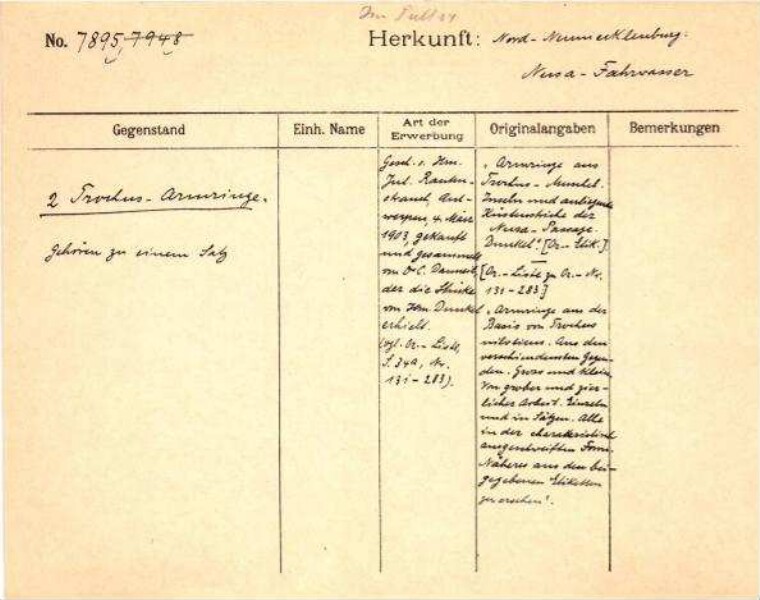 Im Pult
No. 7895, 7948
Herkunft: Nord-Neumecklenburg.
Nusa-Fahrwasser
Gegenstand
Einh. Name
Art der
Erwerbung
Originalangaben
Bemerkungen
2 Trochus-Armringe.
Gehören zu einem Satz
Gesch. v. Hrn.
Jul. Rauten-
strauch, Ant-
werpen, 4. März
1903, gekauft
und gesammelt
von Dr C.
der die Stücke
von Hrn. Dunkel
erhielt.
(vgl. Or.-Liste,
S. 34a, Nr.
131-283).
"Armringe aus
Trochus-Muschel.
Inseln und anliegende
Küstenstriche der
Nusa-Passage.
Dunkel". [Or.-Etik.].
[Or.-Liste zu Or.-Nr.
131-283]
"Armringe aus der
Basis von Trochus
niloticus. Aus den
verschiedensten Gegen-
den. Gross und klein
von grober und zier-
licher Arbeit. Einzeln
und in Sätzen. Alle
in der charakteristisch
ausgeschweiften Form.
Näheres aus den bei-
gegebenen Etiketten
zu ersehen".